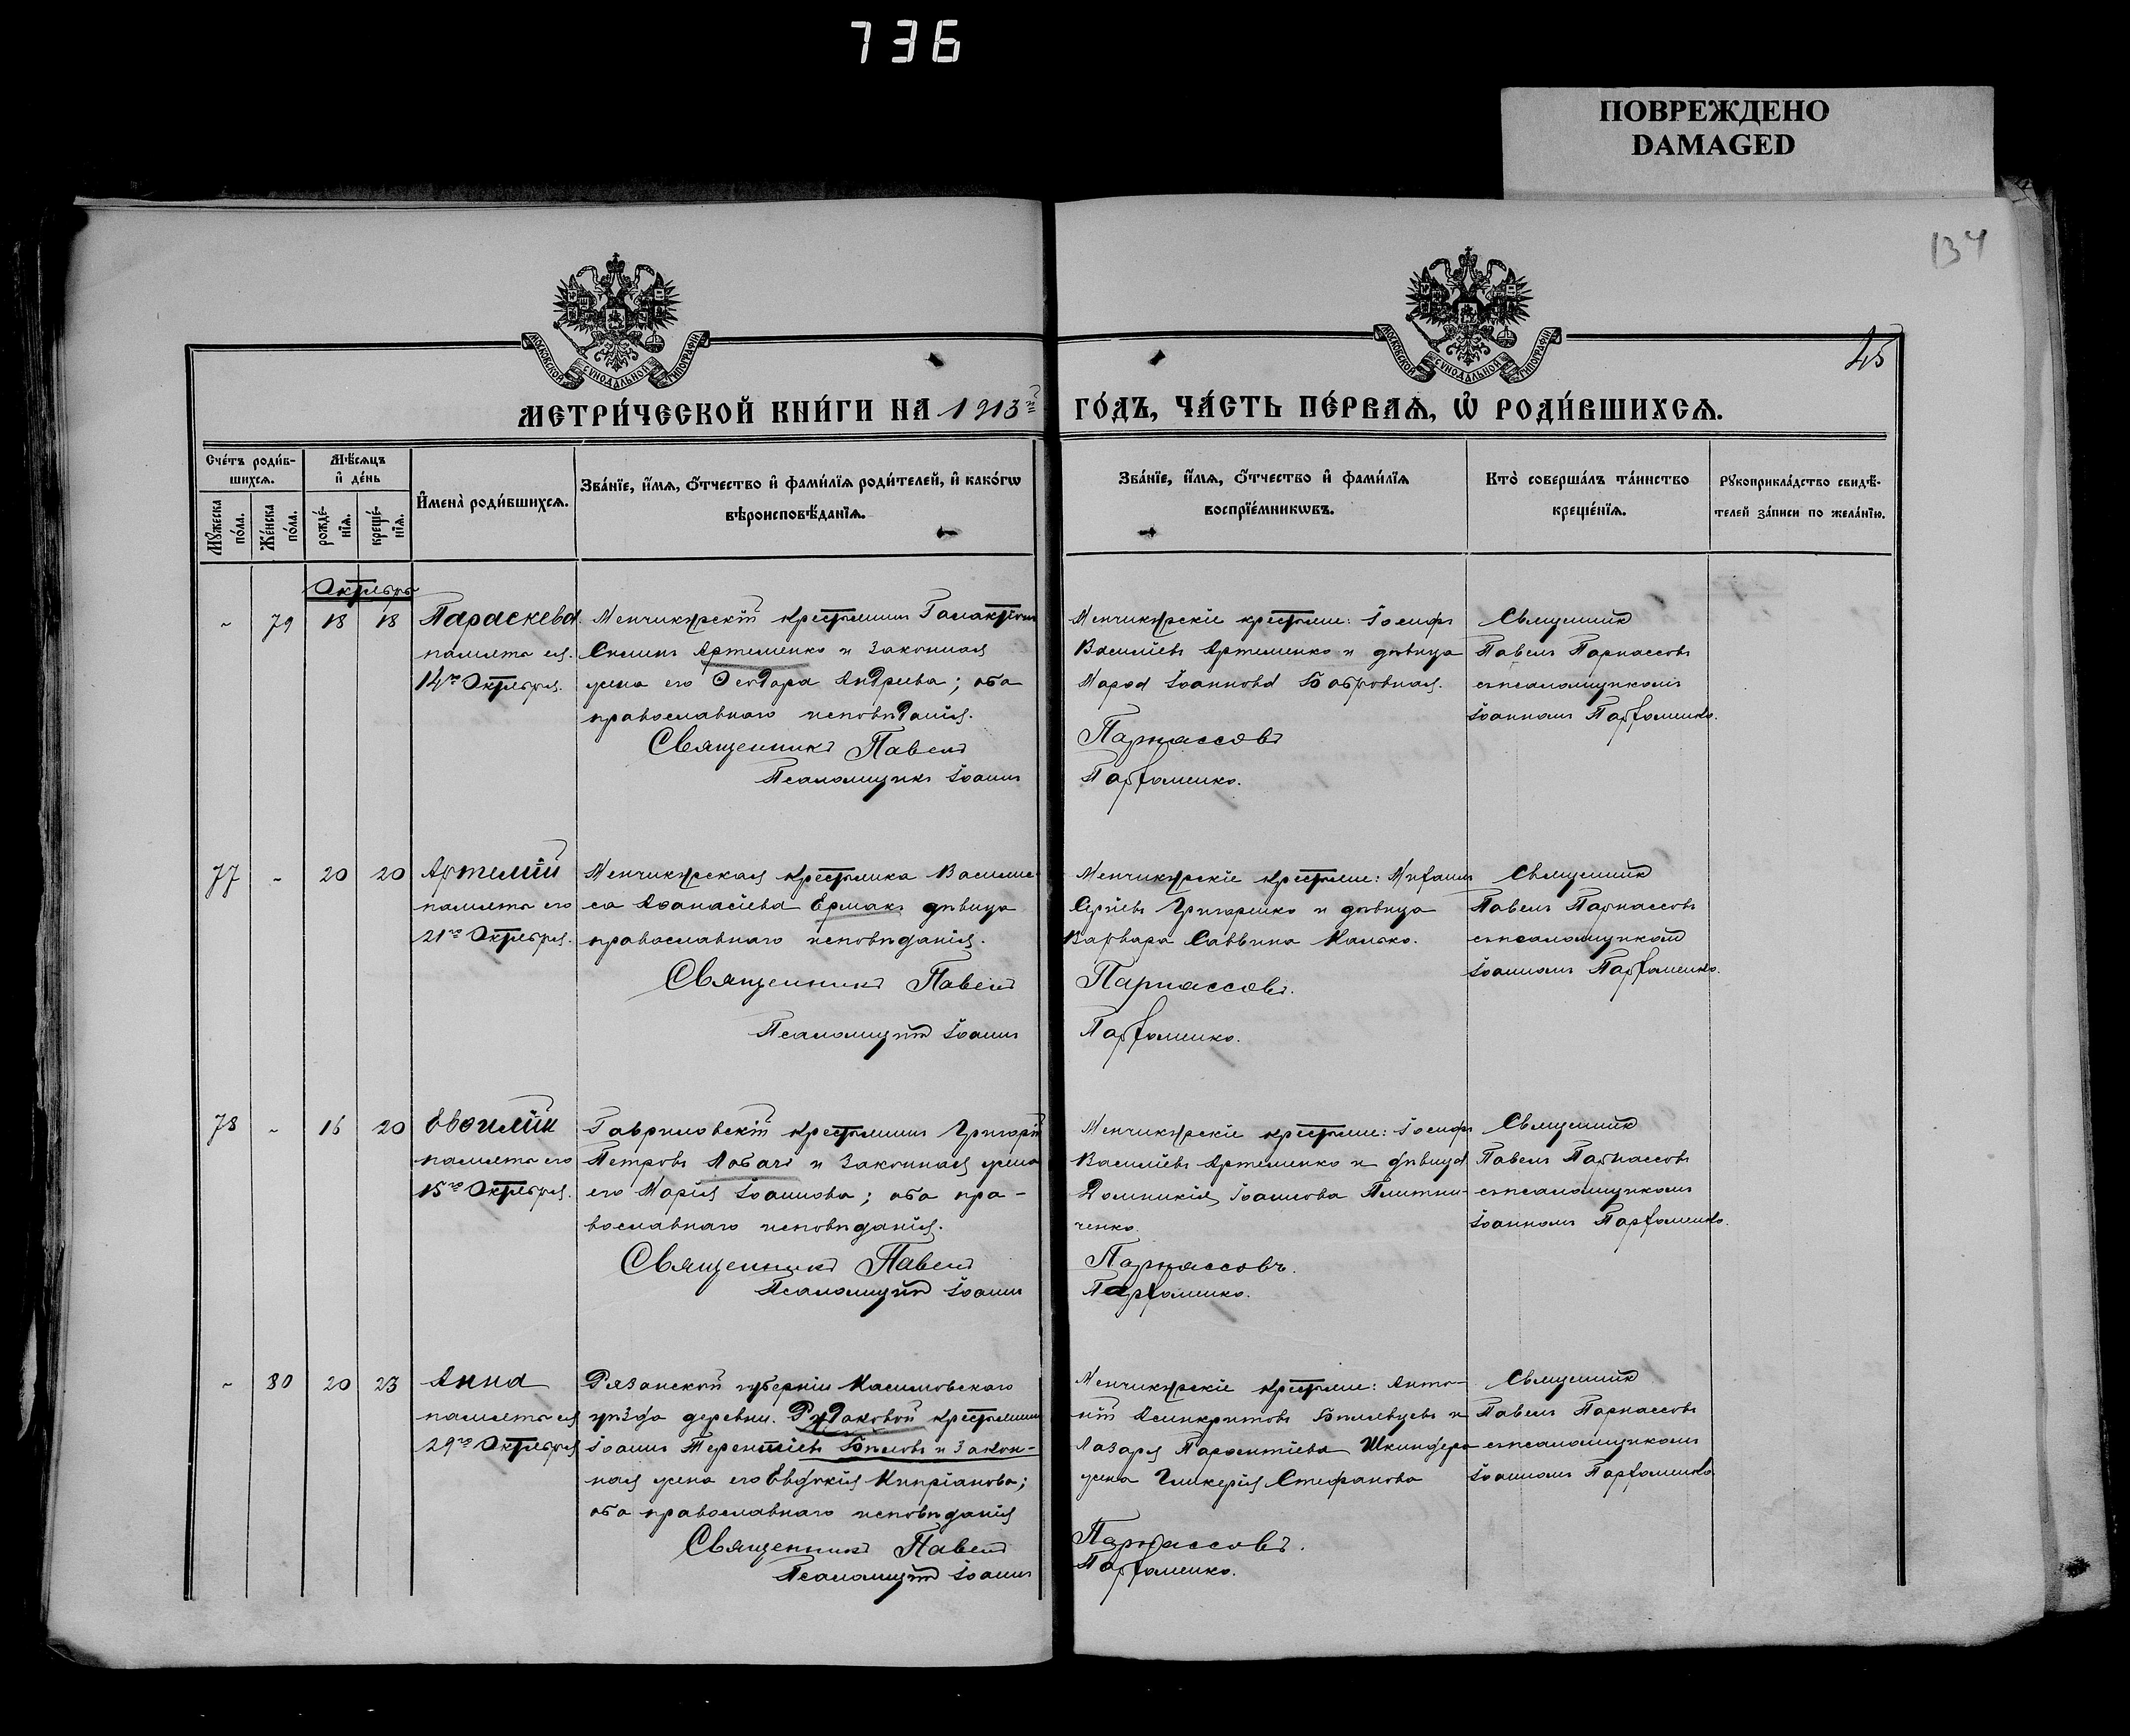 736
ПОВРЕЖДЕНО
DAMAGED
134
45
МОСКОВСКОЙ СѴНОДАЛЬНОЙ ТИПОГРАФІИ
МОСКОВСКОЙ СѴНОДАЛЬНОЙ ТИПОГРАФІИ
МЕТРИ́ЧЕСКОЙ КНИ́ГИ НА 1913й ГО́ДЪ, ЧА́СТЬ ПЕ́РВАѦ, Ѡ҆ РОДИ́ВШИХСѦ.
Сче́тъ роди́вшихсѧ.
Мꙋ́жеска по́ла.
Же́нска по́ла.
Мѣ́сѧцъ и҆ де́нь
рожде́нїѧ.
креще́нїѧ.
И҆мена̀ роди́вшихсѧ.
Зва́нїе, и҆́мѧ, ѻ҆́тчество и҆ фами́лїѧ роди́телей, и҆ како́гѡ вѣроисповѣ́данїѧ.
Зва́нїе, и҆́мѧ, ѻ҆́тчество и҆ фами́лїѧ воспрїе́мникѡвъ.
Кто̀ соверша́лъ та́инство креще́нїѧ.
Рꙋкоприкла́дство свидѣ́телей за́писи по жела́нїю.
Октябрь
- 79 18 18 Параскева
память ея
14го Октября.
Менчикурскій крестьянинъ Галактіонъ
Силинъ Артеменко и законная
жена его Ѳеодора Андреева; оба
православнаго исповѣданія.
Священникъ Павелъ Парнассовъ
Псаломщикъ Іоаннъ Парфоменко.
Менчикурскіе крестьяне: Іосифъ
Василіевъ Артеменко и дѣвица
Марѳа Іоаннова Бобровная.
Священникъ
Павелъ Парнассовъ
съ псаломщикомъ
Іоанномъ Парфоменко.
77 - 20 20 Артемій
память его
21го Октября.
Менчикурская крестьянка Василис-
са Аѳанасіева Ермакъ дѣвица
православнаго исповѣданія.
Священникъ Павелъ Парнассовъ.
Псаломщикъ Іоаннъ Парфоменко.
Менчикурскіе крестьяне: Михаилъ
Сергіевъ Григоренко и дѣвица
Варвара Саввина Калько.
Священникъ
Павелъ Парнассовъ
съ псаломщикомъ
Іоанномъ Парфоменко.
78 - 15 20 Евѳимій
память его
15го Октября.
Гавриловскій крестьянинъ Григорій
Петровъ Лобачъ и законная жена
его Марія Іоаннова; оба пра-
вославнаго исповѣданія.
Священникъ Павелъ Парнассовъ.
Псаломщикъ Іоаннъ Парфоменко.
Менчикурскіе крестьяне: Іосифъ
Василіевъ Артеменко и дѣвица
Домникія Іоаннова
ченко.
Священникъ
Павелъ Парнассовъ
съ псаломщикомъ
Іоанномъ Парфоменко.
- 80 20 23 Анна
память ея
29го Октября
Рязанской губерніи Касимовскаго
уѣзда деревни Рудаковой крестьянинъ
Іоаннъ Терентіевъ Бѣловъ и закон-
ная жена его Евдокія Кипріанова;
оба православнаго исповѣданія
Священникъ Павелъ Парнассовъ.
Псаломщикъ Іоаннъ Парфоменко.
Менчикурскіе крестьяне: Анто-
ній Асинкритовъ и
Лазаря Шкиндера
жена Гликерія Стефанова
Священникъ
Павелъ Парнассовъ
съ псаломщикомъ
Іоанномъ Парфоменко